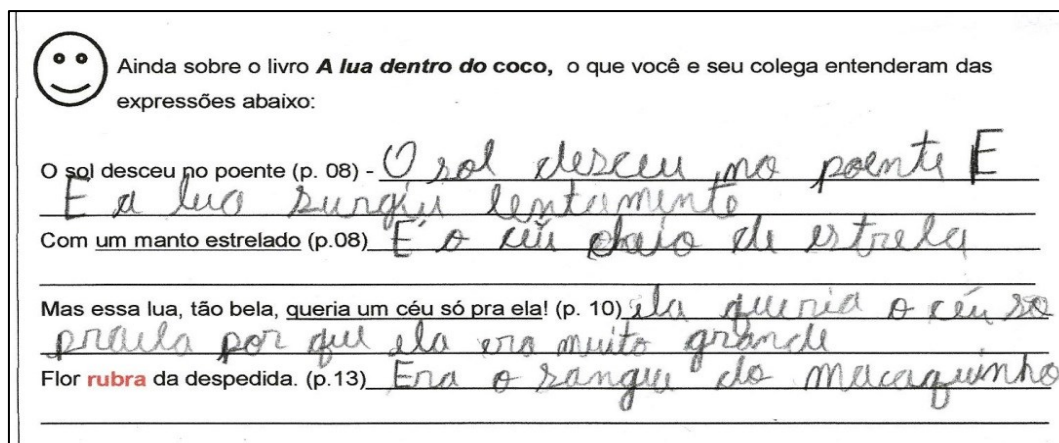 Ainda sobre o livro A lua dentro do coco, o que você e seu colega entenderam das
expressões abaixo:
O sol desceu no poente (p. 08) - O sol desceu no poente E
E a lua surgiu lentamente
Com um manto estrelado (p.08) E o céu chaio de estrela
Mas essa lua, tão bela, queria um céu só pra ela! (p. 10) ela queria o céu so
praela por que ela era muito grande
Flor rubra da despedida. (p.13) Era o sangue do macaquinho